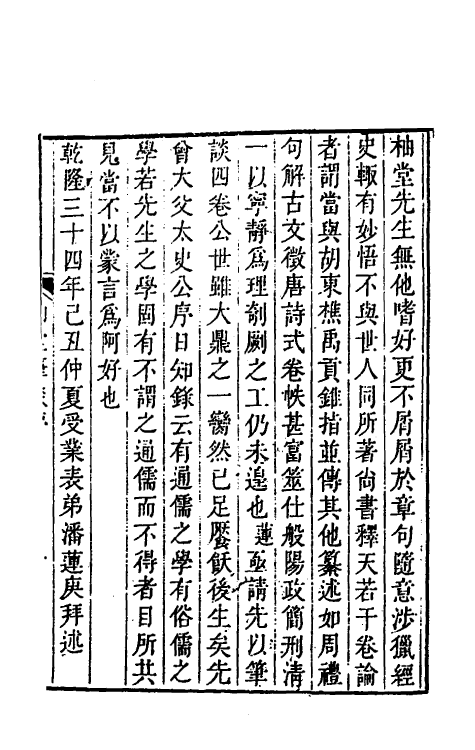 柚堂先生無他嗜好更不屑屑於章句隨意涉獵經
史輙有妙悟不與世人同所著尚書釋天若干卷論
者謂當與胡東樵禹貢錐指並傳其他纂述如周禮
句解古文徵唐詩式卷帙甚富筮仕般陽政簡刑清
一以寧靜爲理剞劂之工仍未遑也蓮亟請先以筆
談四卷公世雖大鼎之一臠然已足饜飫後生矣先
曾大父太史公序日知錄云有通儒之學有俗儒之
學若先生之學固有不謂之通儒而不得者目所共
見當不以蒙言爲阿好也
乾隆三十四年己丑仲夏受業表弟潘蓮庚拜述